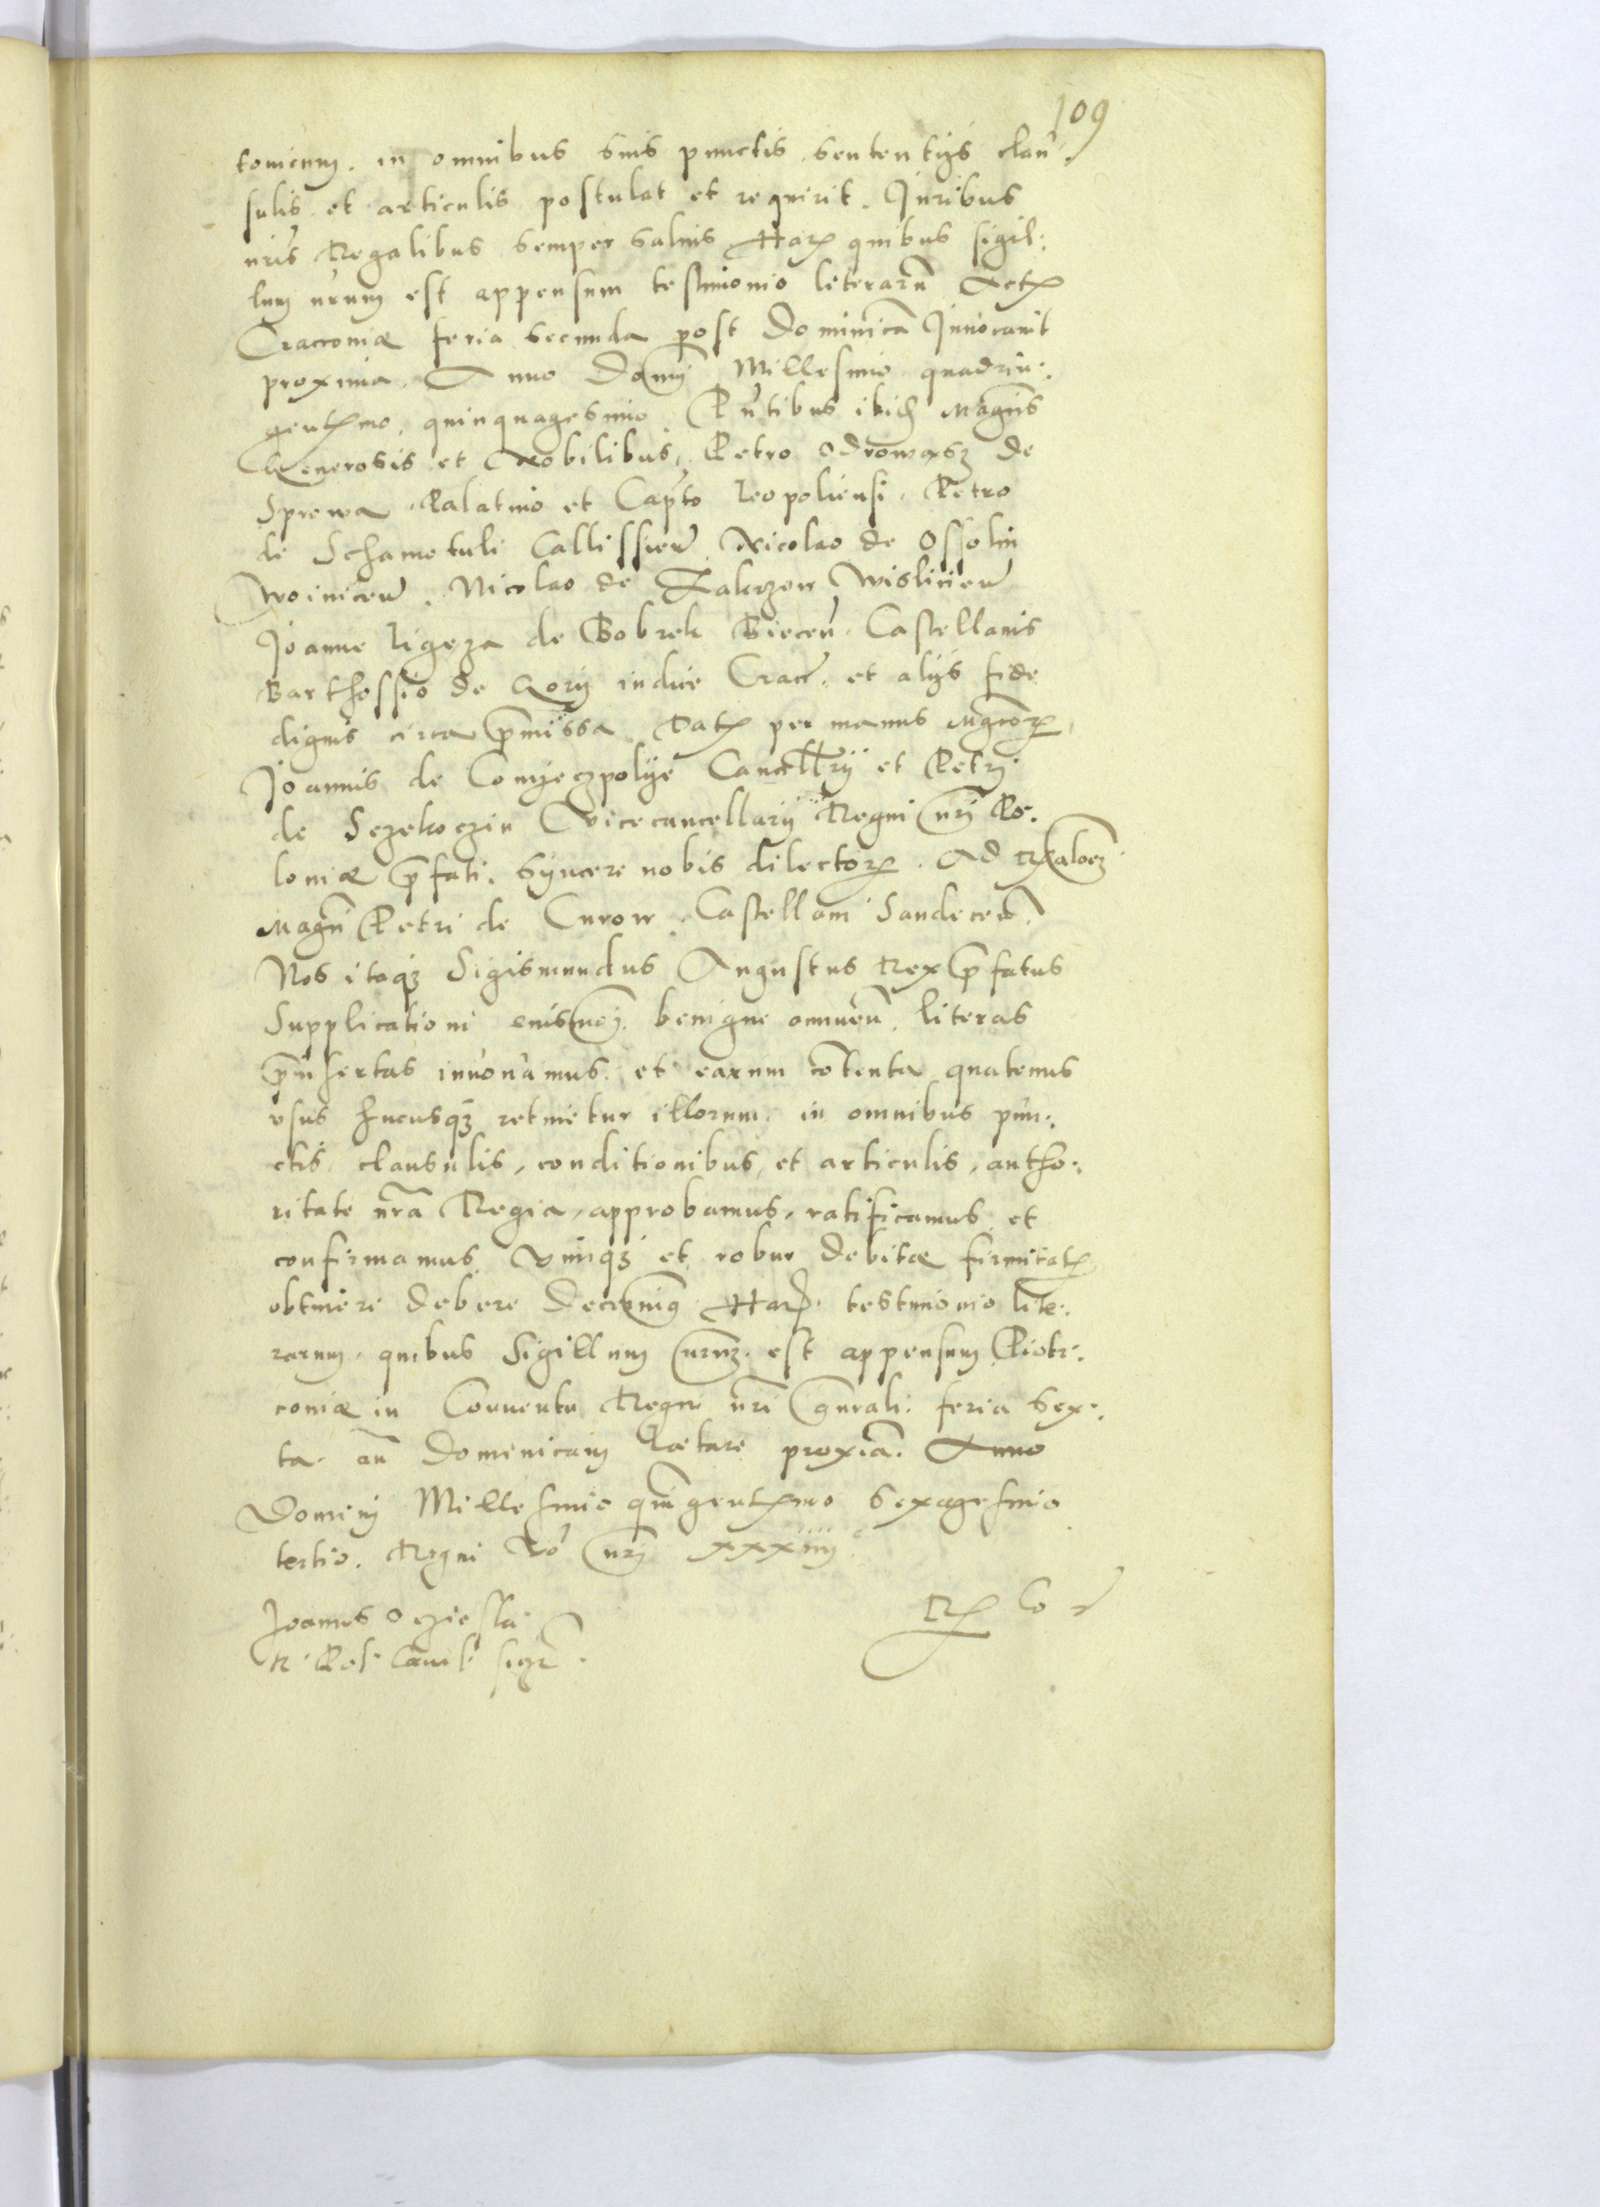 109
tonicum. in omnibus suis punctis sententijs clau-
sulis et articulis postulat et requirit. Juribus
nris Regalibus semper saluis Harū quibus sigil:
lum nrum est appensum testimonio literarū Actū
Cracoviæ feria secunda post Dominicā Invocavit
proxima. Anno Domj Millesimo quadrin:
gentmo quinquagesimo. Pntibus ibidē Magcis
Generosis et Nobilibus, Petro Odrowasz de
Sprowa Palatino et Capto Leopoliensi. Petro
de Schamotuli Callissien Nicolao de Ossolin
Woinicen. Nicolao de Zakrzow Wislicien
Joanne Ligeza de Bobrek Biecen. Castellanis
Barthossio de Gory iudice Crac. et alijs fide
dignis circa pmissa. Datū per manus Mgcorū
Joannis de Conyeczpolye Cancellrij et Petrj
de Sczekoczin Vicecancellarij Regni nrj Po:
loniæ pfati. Syncere nobis dilectorū. Ad Rlaloēz
Magci Petri de Curow Castellani Sandecen.
Nos itaqз Sigismundus Augustus Rex pfatus
Supplicationi benigne annuen. literas
pinsertas innovamus. et earum cōtenta quatenus
usus hucusqз retinetur illorum. in omnibus pun:
ctis clausulis, conditionibus et articulis, autho:
ritate nra Regia, approbamus, ratificamus et
confirmamus vimqз et robur debitæ firmitatis
obtinere debere decernimq Harū testimonio lite:
rarum. quibus Sigillum nrmz est appensum Piotr:
coviæ in Conventu Regni nri gnrali. feria sex:
ta an Domenicam Lætare proxiā. Anno
Dominj Millesimo quingentmo sexagesimo
tertio. Regni vo nrj xxxiiij
Joannes Oczieski
R. Pol. Canc. sigt.